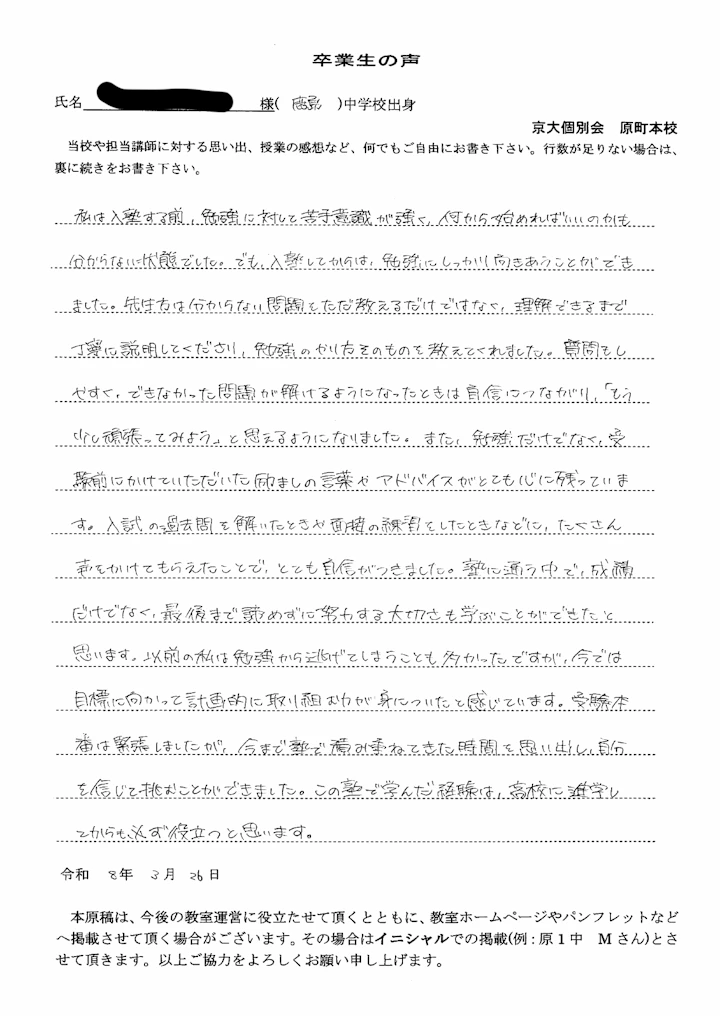 卒業生の声
氏名 様( 鹿島 )中学校出身
京大個別会 原町本校
当校や担当講師に対する思い出、授業の感想など、何でもご自由にお書き下さい。行数が足りない場合は、
裏に続きをお書き下さい。
私は入塾する前、勉強に対して苦手意識が強く、何から始めればいいのかも
分からない状態でした。でも、入塾してからは、勉強にしっかり向きあうことができ
ました。先生方は分からない問題をただ教えるだけではなく、理解できるまで
丁寧に説明してくださり、勉強のやり方そのものを教えてくれました。質問もし
やすく、できなかった問題が解けるようになったときは自信につながり、「もう
少し頑張ってみよう」と思えるようになりました。また、勉強だけでなく、受
験前にかけていただいた励ましの言葉やアドバイスがとても心に残っていま
す。入試の過去問を解いたときや面接の練習をしたときなどに、たくさん
声をかけてもらえたことで、とても自信がつきました。塾に通う中で、成績
だけでなく、最後まで諦めずに努力する大切さも学ぶことができたと
思います。以前の私は勉強から逃げてしまうことも多かったですが、今では
目標に向かって計画的に取り組む力が身についたと感じています。受験本
番は緊張しましたが、今まで塾で積み重ねてきた時間を思い出し、自分
を信じて挑むことができました。この塾で学んだ経験は、高校に進学し
てからも必ず役立つと思います。
令和 8年 3月 26日
本原稿は、今後の教室運営に役立たせて頂くとともに、教室ホームページやパンフレットなど
へ掲載させて頂く場合がございます。その場合はイニシャルでの掲載(例:原1中 Mさん)とさ
せて頂きます。以上ご協力をよろしくお願い申し上げます。